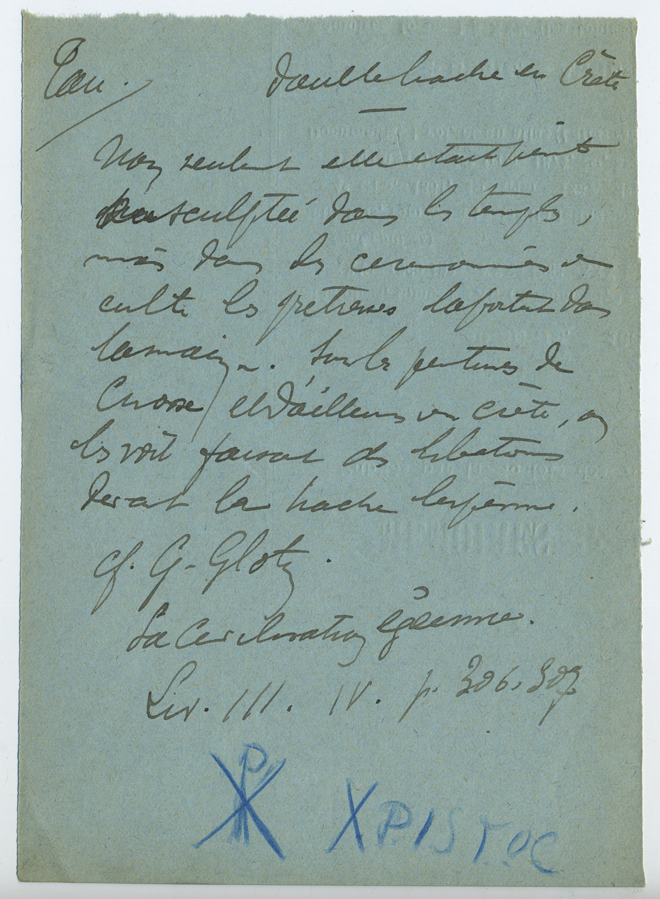 Pau. double hache en Crète
Non seulement elle était peinte
sculptée dans les temples,
mais dans les ceremonies du
culte les pretresses la portent dans
la main. Sur les peintures de
Cnosse, et d'ailleurs en crète, on
les voit faisant des libations
devant la hache
cf. G. Glotz.
La Civilisation égéenne.
Liv. III. IV. p. 306. 307
ΧΡΙSTOC